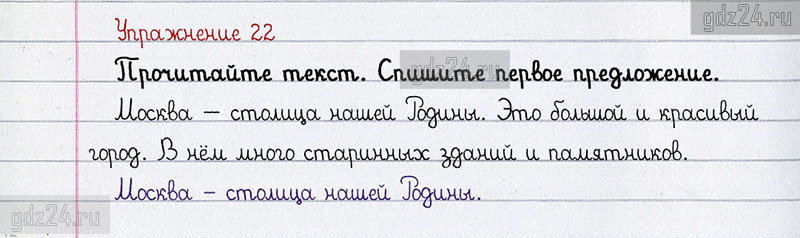 gdz24.ru
Упражнение 22
gdz24.ru
Прочитайте текст. Спишите первое предложение.
Москва – столица нашей Родины. Это большой и красивый
город. В нём много старинных зданий и памятников.
Москва – столица нашей Родины.
gdz24.ru